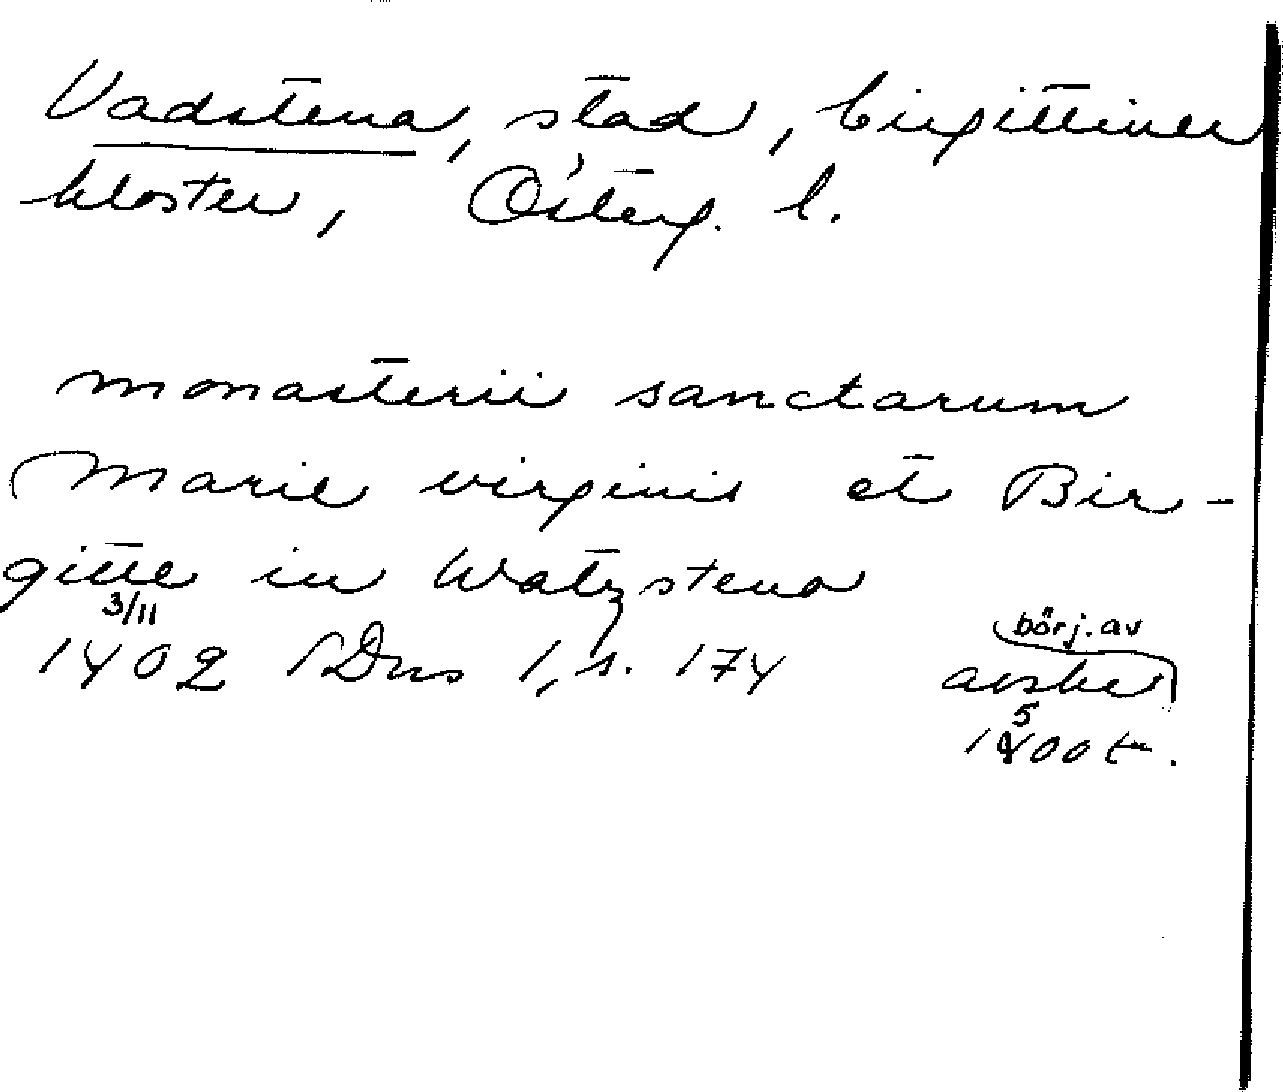 Vadstena, stad, birgittiner
kloster, Österg. l.
monasterii sanctarum
Marie virginis et Bir-
gitte in Watzstena
3/11
1402 SDns 1, s. 174
börj. av
avskr
5
1400 t.